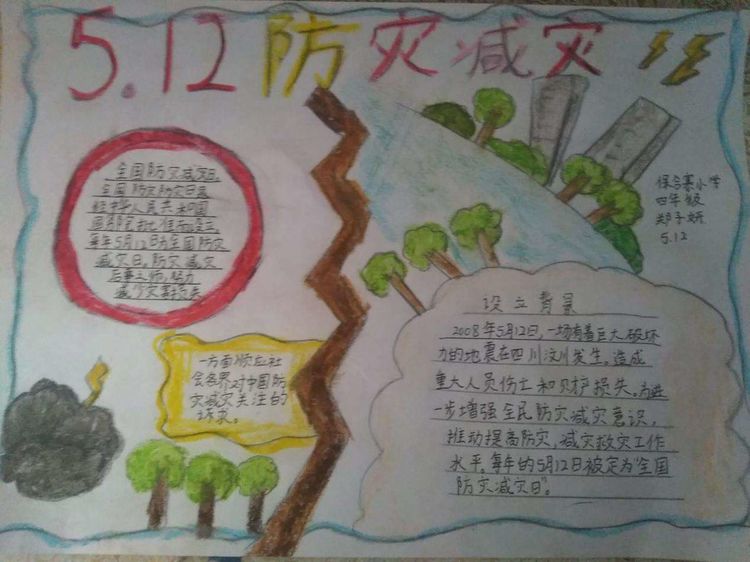 5.12防灾减灾
全国防灾减灾日,
全国防灾减灾日是
经中华人民共和国
国务院批准而设立,
每年5月12日为全国防灾
减灾日。防灾减灾
后事之师,努力
减少灾害损失
一方面顺应社
会各界对中国防
灾减灾关注的
诉求。
保合寨小学
四年级
郑子妍
5.12
设立背景
2008年5月12日,一场有着巨大破坏
力的地震在四川汶川发生。造成
重大人员伤亡和财产损失。为进
一步增强全民防灾减灾意识,
推动提高防灾,减灾救灾工作
水平。每年的5月12日被定为“全国
防灾减灾日”。